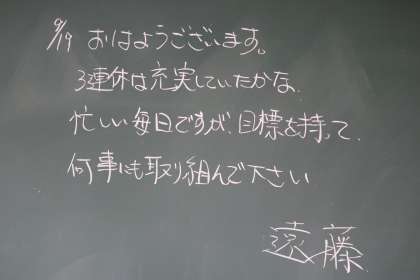 9/19 おはようございます。
3連休は充実していたかな
忙しい毎日ですが、目標を持って、
何事にも取り組んで下さい
遠藤